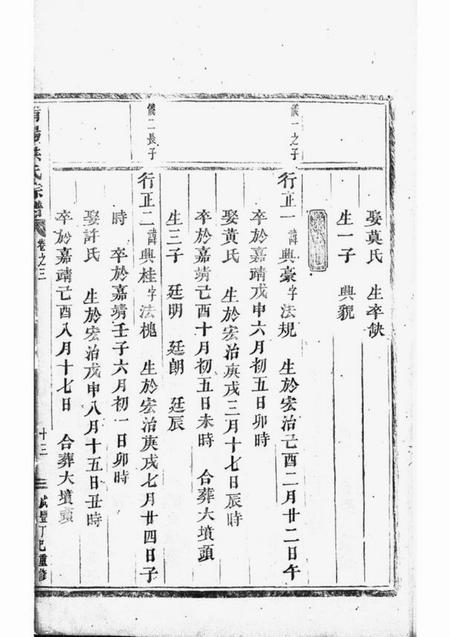 娶莫氏　生卒缺
生一子　興貌
儀一之子
行正一　諱興豪字法規　生於宏治己酉二月廿二日午
時　卒於嘉靖戊申六月初五日卯時
娶黃氏　生於宏治庚戌三月十七日辰時
卒於嘉靖己酉十月初五日未時　合葬大墳頭
生三子　廷明　廷朗　廷辰
儀二長子
行正二　諱興桂字法槐　生於宏治庚戌七月廿四日子
時　卒於嘉靖壬子六月初一日卯時
娶許氏　生於宏治戊申八月十五日丑時
卒於嘉靖己酉八月十七日　合葬大墳頭
氏宗譜　卷之三　十三　咸豐丁巳重修